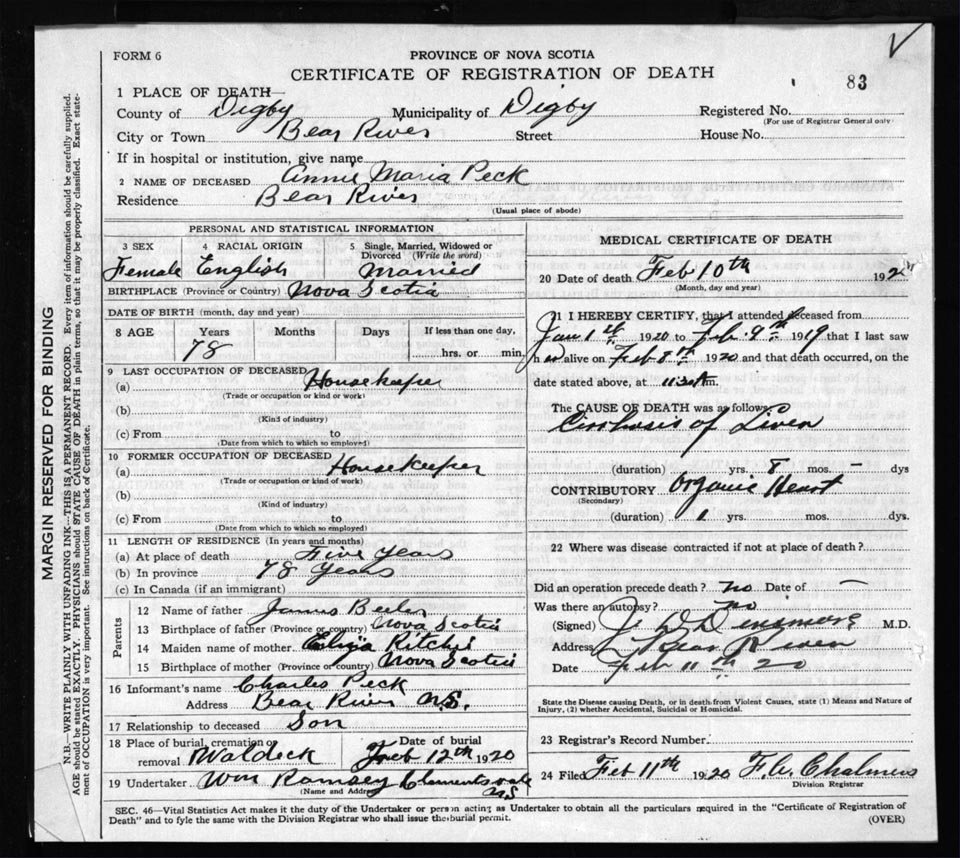 FORM 6
PROVINCE OF NOVA SCOTIA
CERTIFICATE OF REGISTRATION OF DEATH
83
1 PLACE OF DEATH—
County of Digby Municipality of Digby Registered No.
(For use of Registrar General only
City or Town Bear River Street House No.
If in hospital or institution, give name
2 NAME OF DECEASED Annie Maria Peck
Residence Bear River
(Usual place of abode)
PERSONAL AND STATISTICAL INFORMATION
3 SEX 4 RACIAL ORIGIN 5 Single, Married, Widowed or Divorced (Write the word)
Female English Married
BIRTHPLACE (Province or Country) Nova Scotia
DATE OF BIRTH (month, day and year)
8 AGE Years Months Days If less than one day,
78 hrs. or min.
9 LAST OCCUPATION OF DECEASED
(a) Housekeeper
(Trade or occupation or kind or work)
(b)
(Kind of industry)
(c) From to
(Date from which to which so employed)
10 FORMER OCCUPATION OF DECEASED
(a) Housekeeper
(Trade or occupation or kind of work)
(b)
(Kind of industry)
(c) From to
(Date from which to which so employed)
11 LENGTH OF RESIDENCE (In years and months)
(a) At place of death Five Years
(b) In province 78 Years
(c) In Canada (if an immigrant)
Parents
12 Name of father James
13 Birthplace of father (Province or country) Nova Scotia
14 Maiden name of mother Eliza Ritchie
15 Birthplace of mother (Province or country) Nova Scotia
16 Informant's name Charles Peck
Address Bear River N.S.
17 Relationship to deceased Son
18 Place of burial, cremation or removal Waldeck Date of burial Feb 12th 1920
19 Undertaker Wm Ramsey Clementsvale NS
(Name and Address)
MEDICAL CERTIFICATE OF DEATH
20 Date of death Feb 10th 192
(Month, day and year)
21 I HEREBY CERTIFY, that I attended deceased from
Jan 1st 1920 to Feb. 9th 1919 that I last saw
h er alive on Feb 8th 1920 and that death occurred, on the
date stated above, at 11.30 A m.
The CAUSE OF DEATH was as follows
Cirrhosis of Liver
(duration) yrs. 8 mos. – dys
CONTRIBUTORY Organic Heart
(Secondary)
(duration) 1 yrs. mos. dys.
22 Where was disease contracted if not at place of death?
Did an operation precede death? no Date of —
Was there an autopsy? no
(Signed) J. W. Dinsmore M.D.
Address Bear River
Date Feb 11th 20
State the Disease causing Death, or in death from Violent Causes, state (1) Means and Nature of
Injury, (2) whether Accidental, Suicidal or Homicidal.
23 Registrar's Record Number
24 Filed Feb 11th 1920 F.W. Chalmers
Division Registrar
SEC. 46—Vital Statistics Act makes it the duty of the Undertaker or person acting as Undertaker to obtain all the particulars required in the "Certificate of Registration of
Death" and to fyle the same with the Division Registrar who shall issue the burial permit. (OVER)
MARGIN RESERVED FOR BINDING
N.B.—WRITE PLAINLY WITH UNFADING INK—THIS IS A PERMANENT RECORD. Every item of information should be carefully supplied.
AGE should be stated EXACTLY. PHYSICIANS should STATE CAUSE OF DEATH in plain terms, so that it may be properly classified. Exact state-
ment of OCCUPATION is very important. See instructions on back of Certificate.